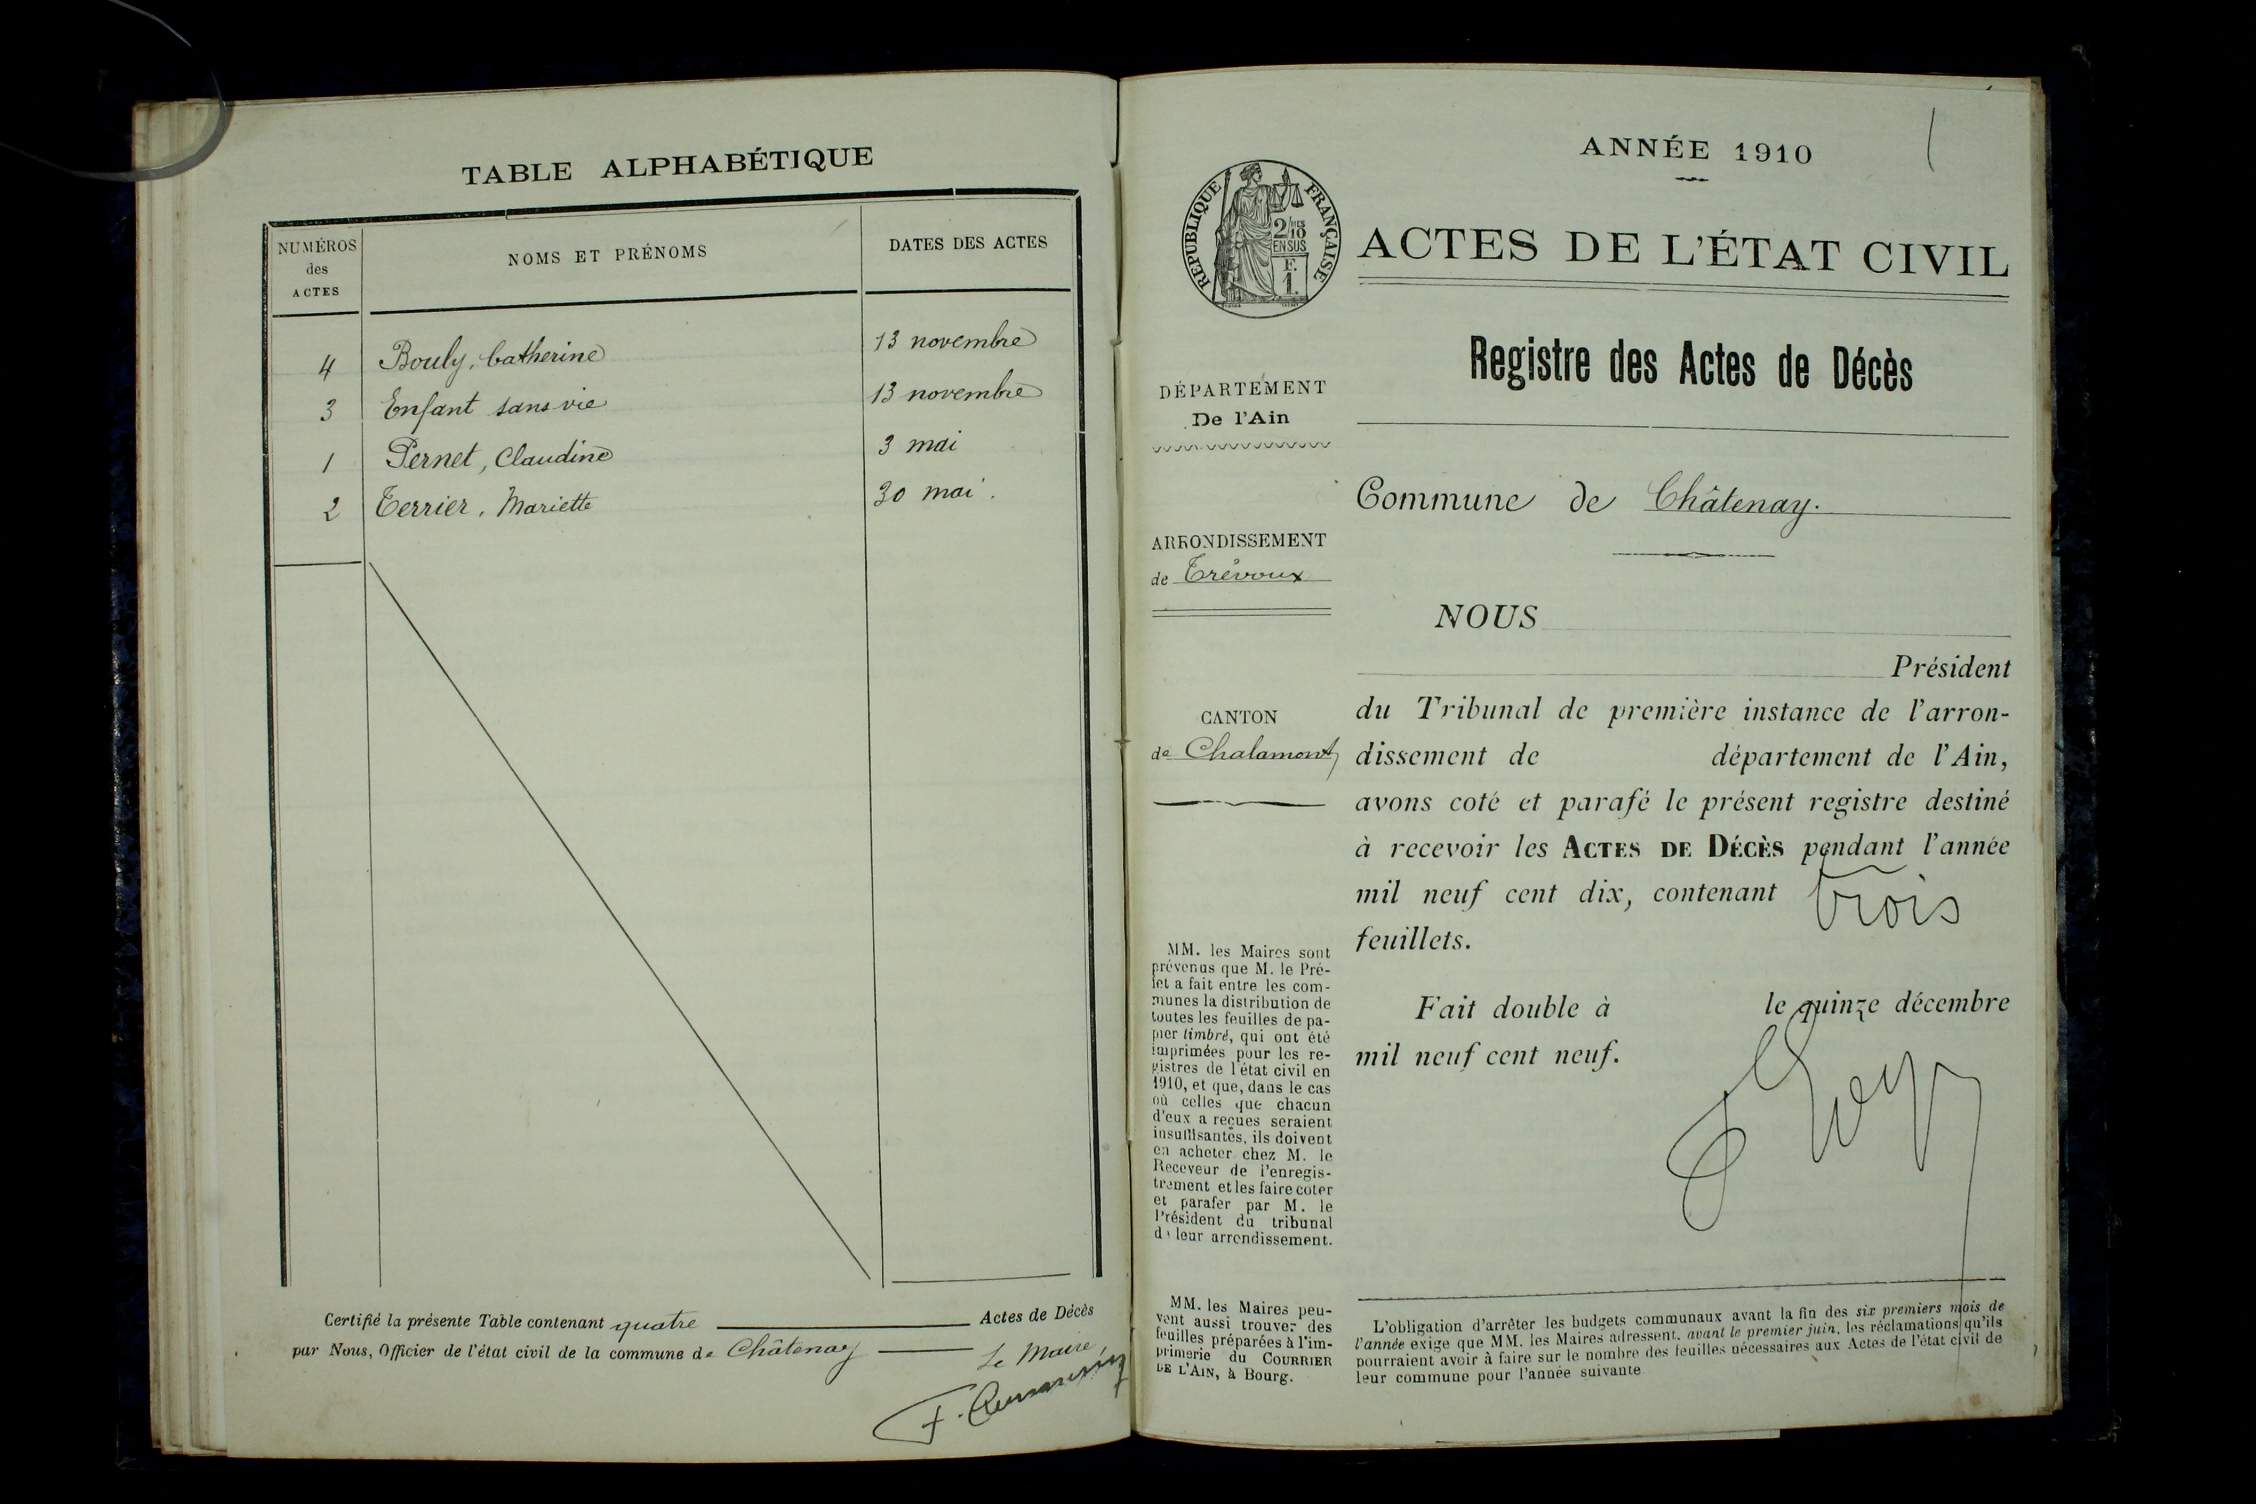 TABLE ALPHABÉTIQUE
NUMÉROS
des
ACTES
NOMS ET PRÉNOMS
DATES DES ACTES
4 Bouly, Catherine 13 novembre
3 Enfant sans vie 13 novembre
1 Pernet, Claudine 3 mai
2 Terrier, Mariette 30 mai.
Certifié la présente Table contenant quatre Actes de Décès
par Nous, Officier de l'état civil de la commune de Châtenay
Le Maire
ANNÉE 1910
RÉPUBLIQUE FRANÇAISE
2/10 MES
EN SUS
F.
1.
ACTES DE L'ÉTAT CIVIL
Registre des Actes de Décès
DÉPARTEMENT
De l'Ain
Commune de Châtenay.
ARRONDISSEMENT
de Trévoux
CANTON
de Chalamont
NOUS
Président
du Tribunal de première instance de l'arron-
dissement de département de l'Ain,
avons coté et parafé le présent registre destiné
à recevoir les ACTES DE DÉCÈS pendant l'année
mil neuf cent dix, contenant trois
feuillets.
Fait double à le quinze décembre
mil neuf cent neuf.
MM. les Maires sont
prévenus que M. le Pré-
fet a fait entre les com-
munes la distribution de
toutes les feuilles de pa-
pier timbré, qui ont été
imprimées pour les re-
gistres de l'état civil en
1910, et que, dans le cas
où celles que chacun
d'eux a reçues seraient
insuffisantes, ils doivent
en acheter chez M. le
Receveur de l'enregis-
trement et les faire coter
et parafer par M. le
Président du tribunal
de leur arrondissement.
MM. les Maires peu-
vent aussi trouver des
feuilles préparées à l'im-
primerie du COURRIER
DE L'AIN, à Bourg.
L'obligation d'arrêter les budgets communaux avant la fin des six premiers mois de
l'année exige que MM. les Maires adressent, avant le premier juin, les réclamations qu'ils
pourraient avoir à faire sur le nombre des feuilles nécessaires aux Actes de l'état civil de
leur commune pour l'année suivante